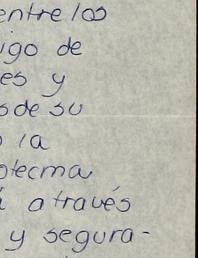 entre los
igo de
es y
s de su
o la
otecma
a través
y segura-